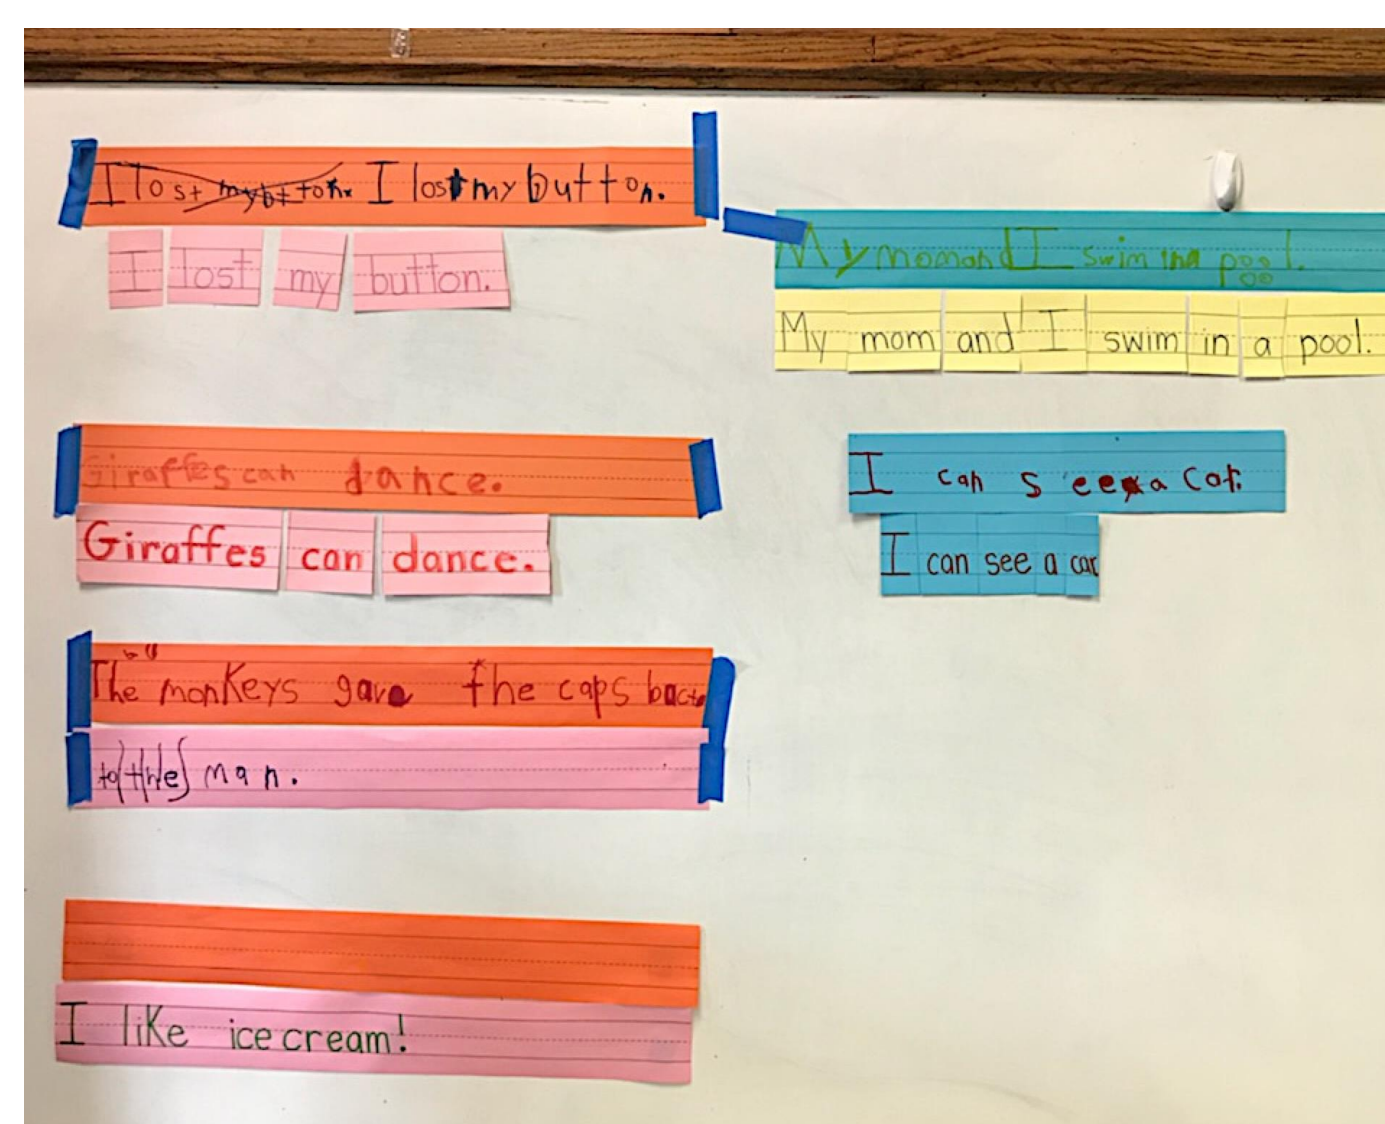 I lost mybtton. I lost my button.
I lost my button.
Giraffes can dance.
Giraffes can dance.
The monKeys gave the caps back
to the man.
I liKe ice cream!
My momand I swim ina pool.
oo
My mom and I swim in a pool.
I can see a cat.
I can see a cat